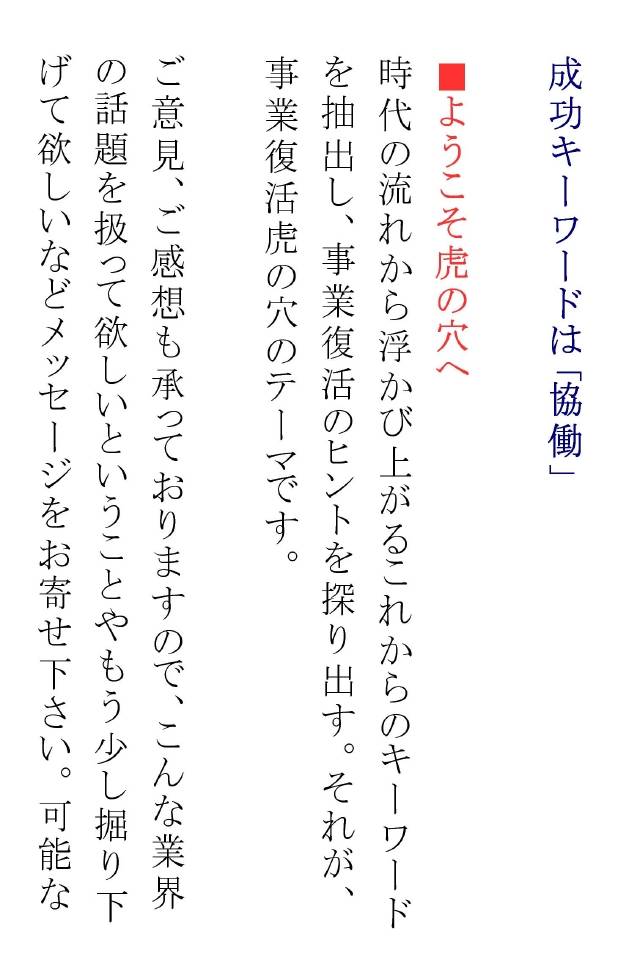 成功キーワードは「協働」
■ようこそ虎の穴へ
時代の流れから浮かび上がるこれからのキーワード
を抽出し、事業復活のヒントを探り出す。それが、
事業復活虎の穴のテーマです。
ご意見、ご感想も承っておりますので、こんな業界
の話題を扱って欲しいということやもう少し掘り下
げて欲しいなどメッセージをお寄せ下さい。可能な